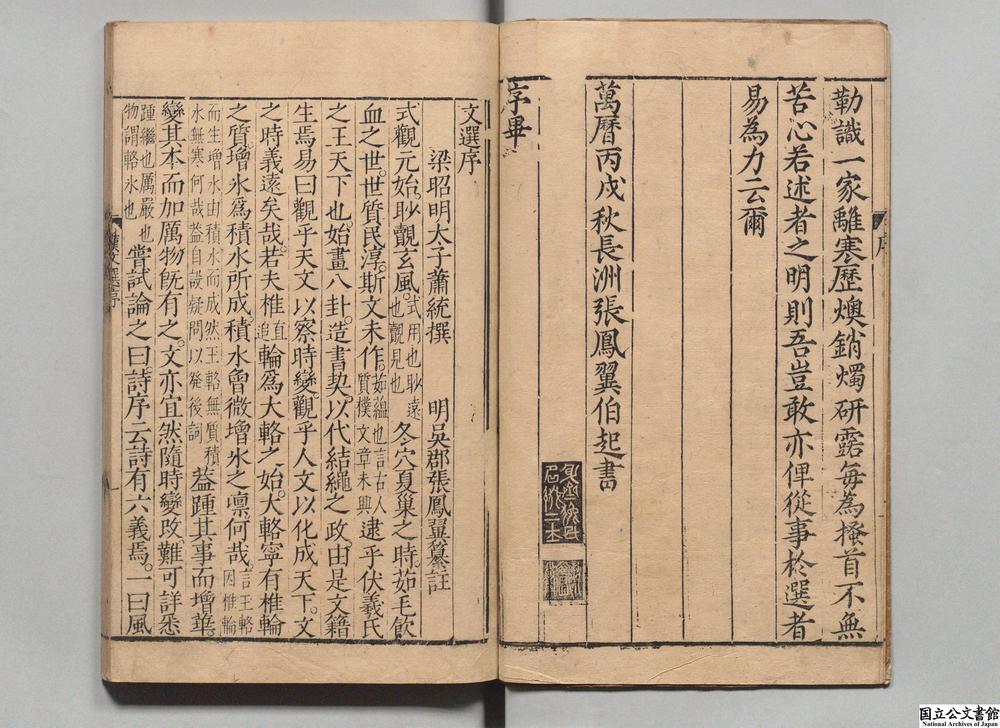 勒識一家離寒歷燠銷燭研露每為搔首不無
苦心若述者之明則吾豈敢亦俾從事於選者
易為力云爾
萬曆丙戌秋長洲張鳳翼伯起書
序畢
序
文選序
梁昭明太子蕭統撰 明吳郡張鳳翼纂註
式觀元始眇覿玄風式用也眇遠也覿見也冬穴夏巢之時茹毛飲
血之世世質民淳斯文未作茹蘊也言古人質樸文章未興逮乎伏羲氏
之王天下也始畫八卦造書契以代結繩之政由是文籍
生焉易曰觀乎天文以察時變觀乎人文以化成天下文
之時義遠矣哉若夫椎直追輪為大輅之始大輅寧有椎輪
之質增冰爲積水所成積水曾微增冰之凜何哉言玉輅因椎輪
而生增冰由積水而成然玉輅無質積水無寒何哉蓋自設疑問以發後詞蓋踵其事而增華
變其本而加厲物旣有之文亦宜然隨時變改難可詳悉
踵繼也厲嚴也物謂輅冰也嘗試論之曰詩序云詩有六義焉一曰風
文選序
国立公文書館
National Archives of Japan